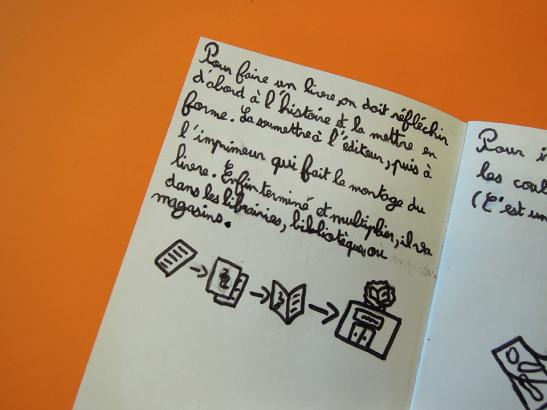 Pour faire un livre, on doit réfléchir
d'abord à l'histoire et la mettre en
forme. La soumettre à l'éditeur, puis à
l'imprimeur qui fait le montage du
livre. Enfin terminé et multiplier, il va
dans les librairies, bibliotèques, ou
magasins.
Pour i
les coul
(C'est un